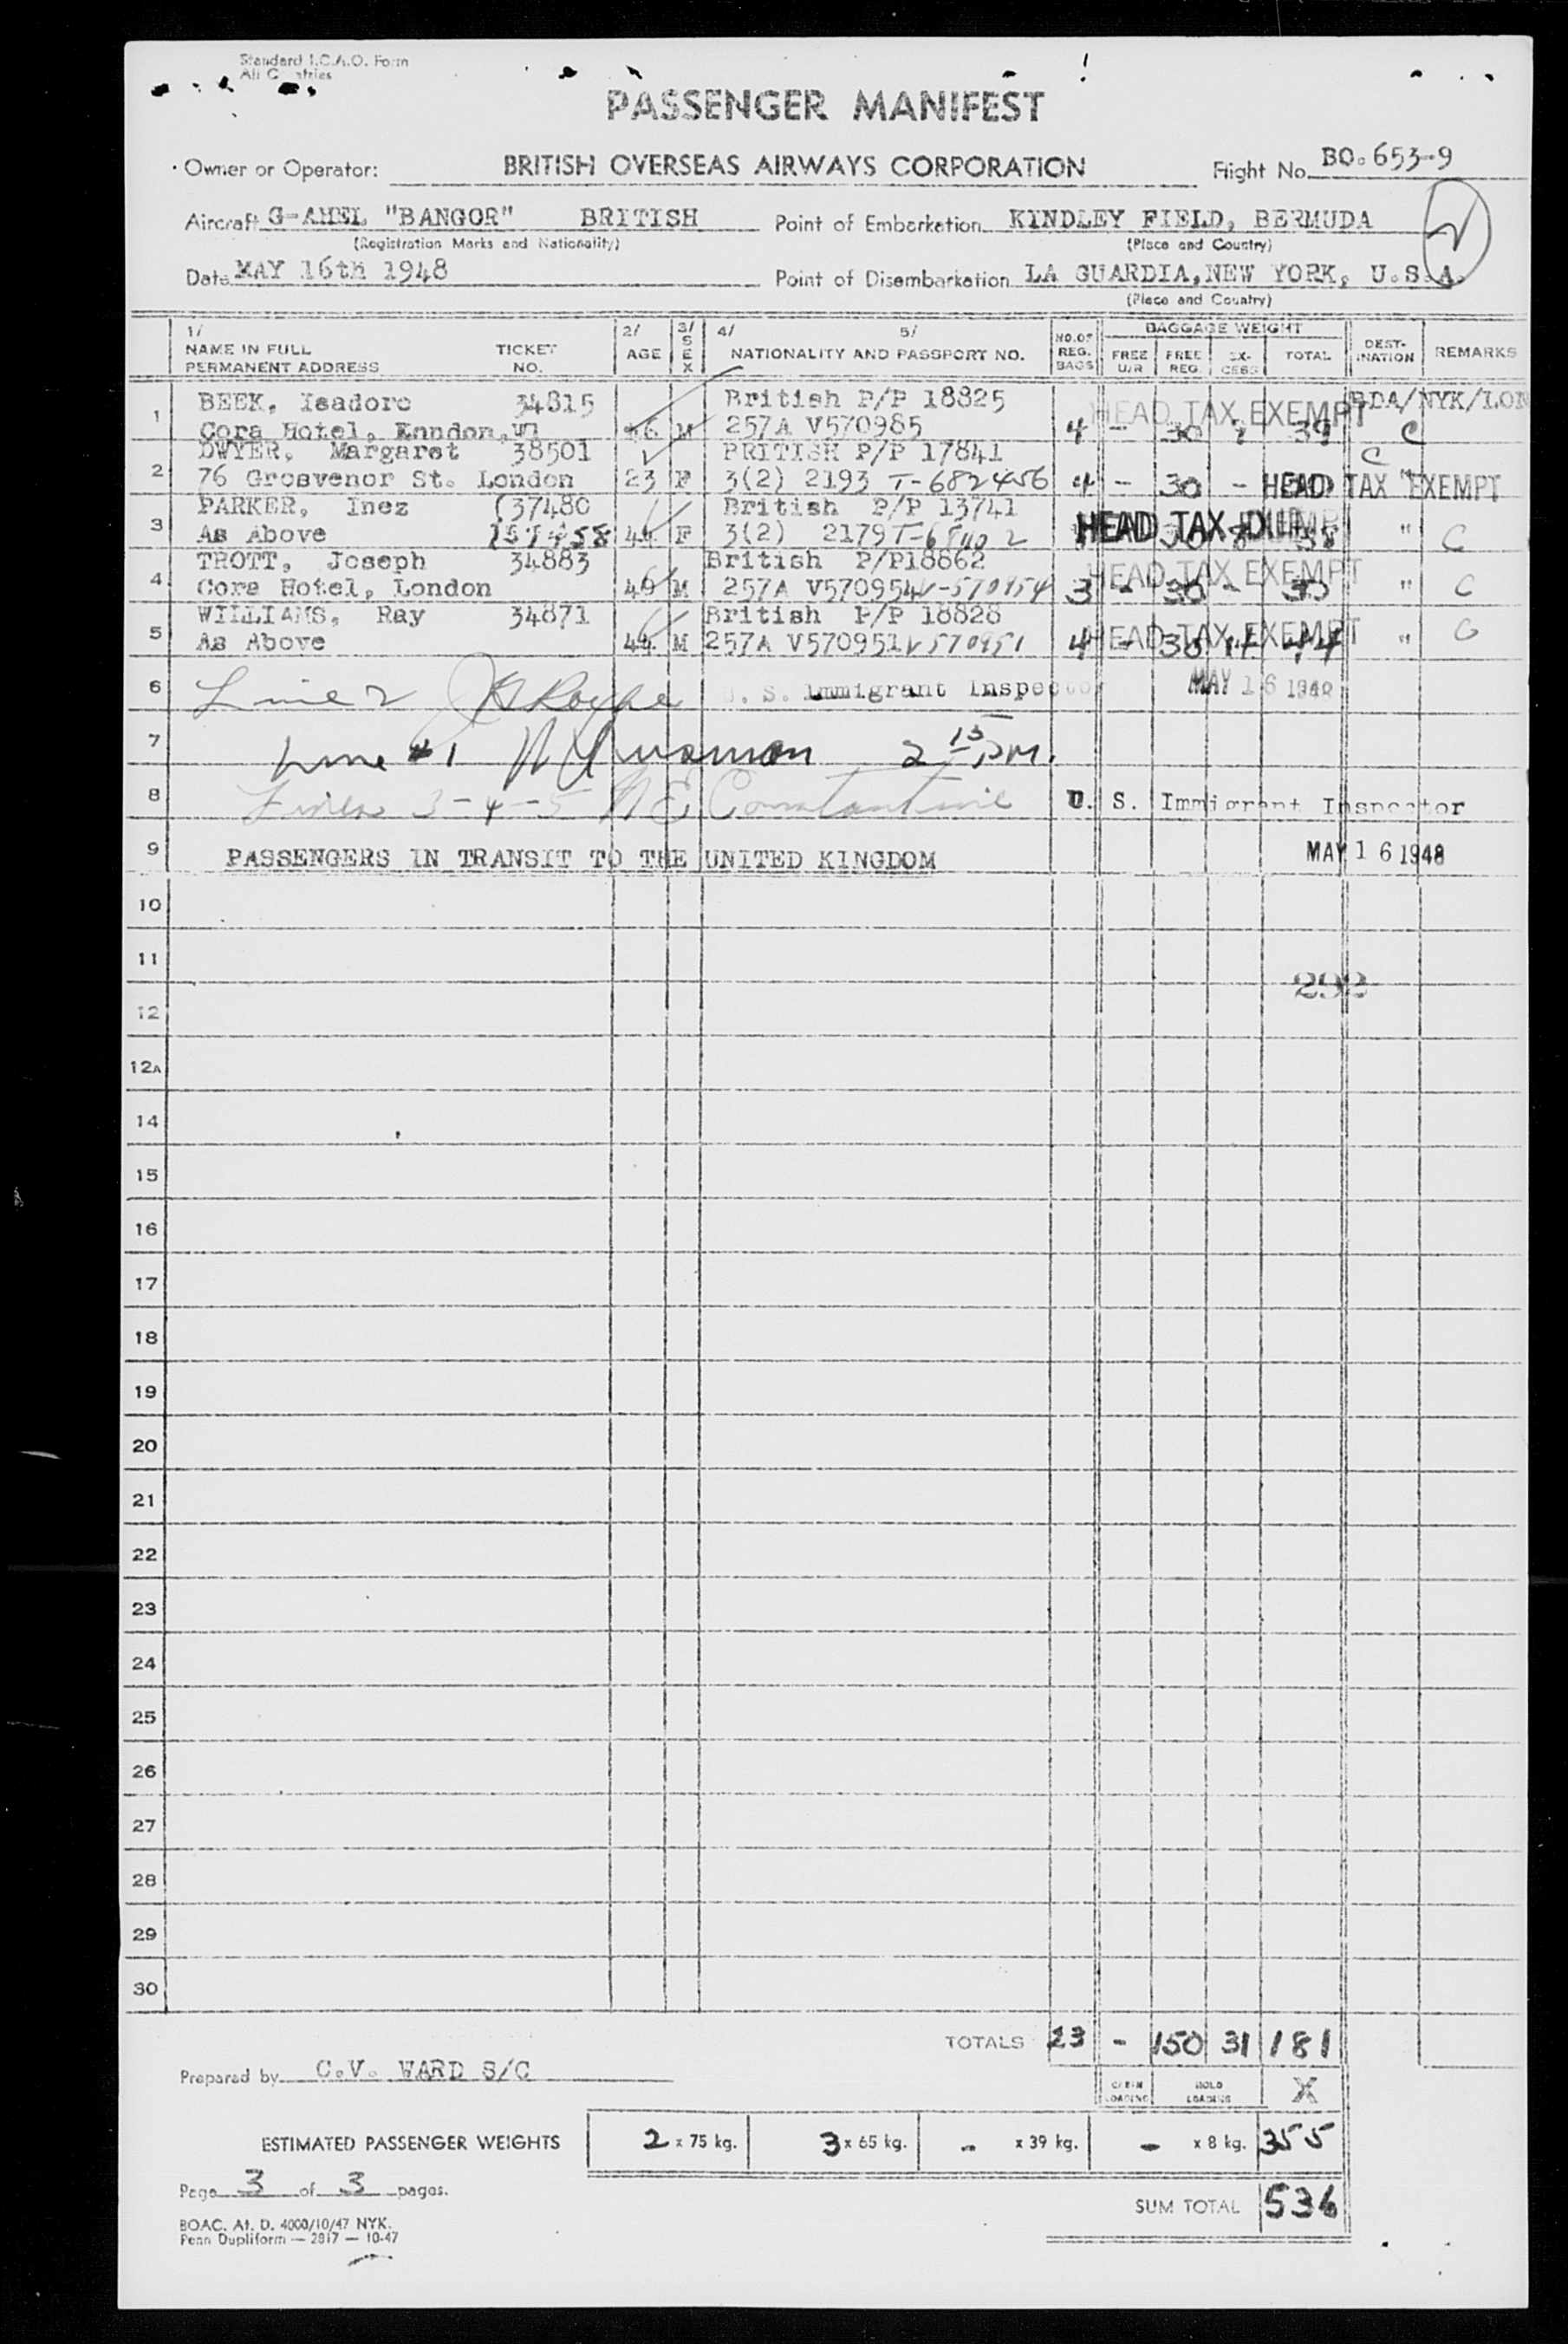 Standard I.C.A.O. Form
All Countries
PASSENGER MANIFEST
Owner or Operator: BRITISH OVERSEAS AIRWAYS CORPORATION Flight No. BO.653-9
Aircraft G-AHEL "BANGOR" BRITISH Point of Embarkation KINDLEY FIELD, BERMUDA
(Registration Marks and Nationality) (Place and Country)
Date MAY 16th 1948 Point of Disembarkation LA GUARDIA, NEW YORK, U.S.A.
(Place and Country)
1/ 2/ 3/ 4/ 5/ BAGGAGE WEIGHT
NAME IN FULL TICKET AGE SEX NATIONALITY AND PASSPORT NO. NO.OF REG. BAGS FREE U/R FREE REG. EX-CESS TOTAL DEST-INATION REMARKS
PERMANENT ADDRESS NO.
BEEK, Isadore 34815 British P/P 18825 HEAD TAX EXEMPT BDA/NYK/LON
1 Cora Hotel, London, W1 46 M 257A V570985 4 - 30 9 39 C
DWYER, Margaret 38501 BRITISH P/P 17841 C
2 76 Grosvenor St. London 23 F 3(2) 2193 T-682456 4 - 30 - HEAD TAX EXEMPT "
PARKER, Inez (37480 British P/P 13741
3 As Above 44 F 3(2) 2179 HEAD TAX 30 8 38 " C
TROTT, Joseph 34883 British P/P18862 HEAD TAX EXEMPT
4 Cora Hotel, London 46 M 257A V570954 V-570954 3 - 30 - 30 " C
WILLIAMS, Ray 34871 British P/P 18828
5 As Above 44 M 257A V570951 V570951 4 HEAD TAX EXEMPT - 30 14 44 " C
6 Line 2 U. S. Immigrant Inspector MAY 16 1948
7 Line #1 2 15 PM.
8 Lines 3-4-5 N E Constantine U. S. Immigrant Inspector
9 PASSENGERS IN TRANSIT TO THE UNITED KINGDOM MAY 16 1948
10
11
292
12
12A
14
15
16
17
18
19
20
21
22
23
24
25
26
27
28
29
30
TOTALS 23 - 150 31 181
Prepared by C.V. WARD S/C
CABIN LOADING HOLD LOADING X
ESTIMATED PASSENGER WEIGHTS 2 x 75 kg. 3 x 65 kg. - x 39 kg. - x 8 kg. 355
Page 3 of 3 pages.
SUM TOTAL 536
BOAC. At. D. 4000/10/47 NYK.
Penn Dupliform — 2817 — 10-47